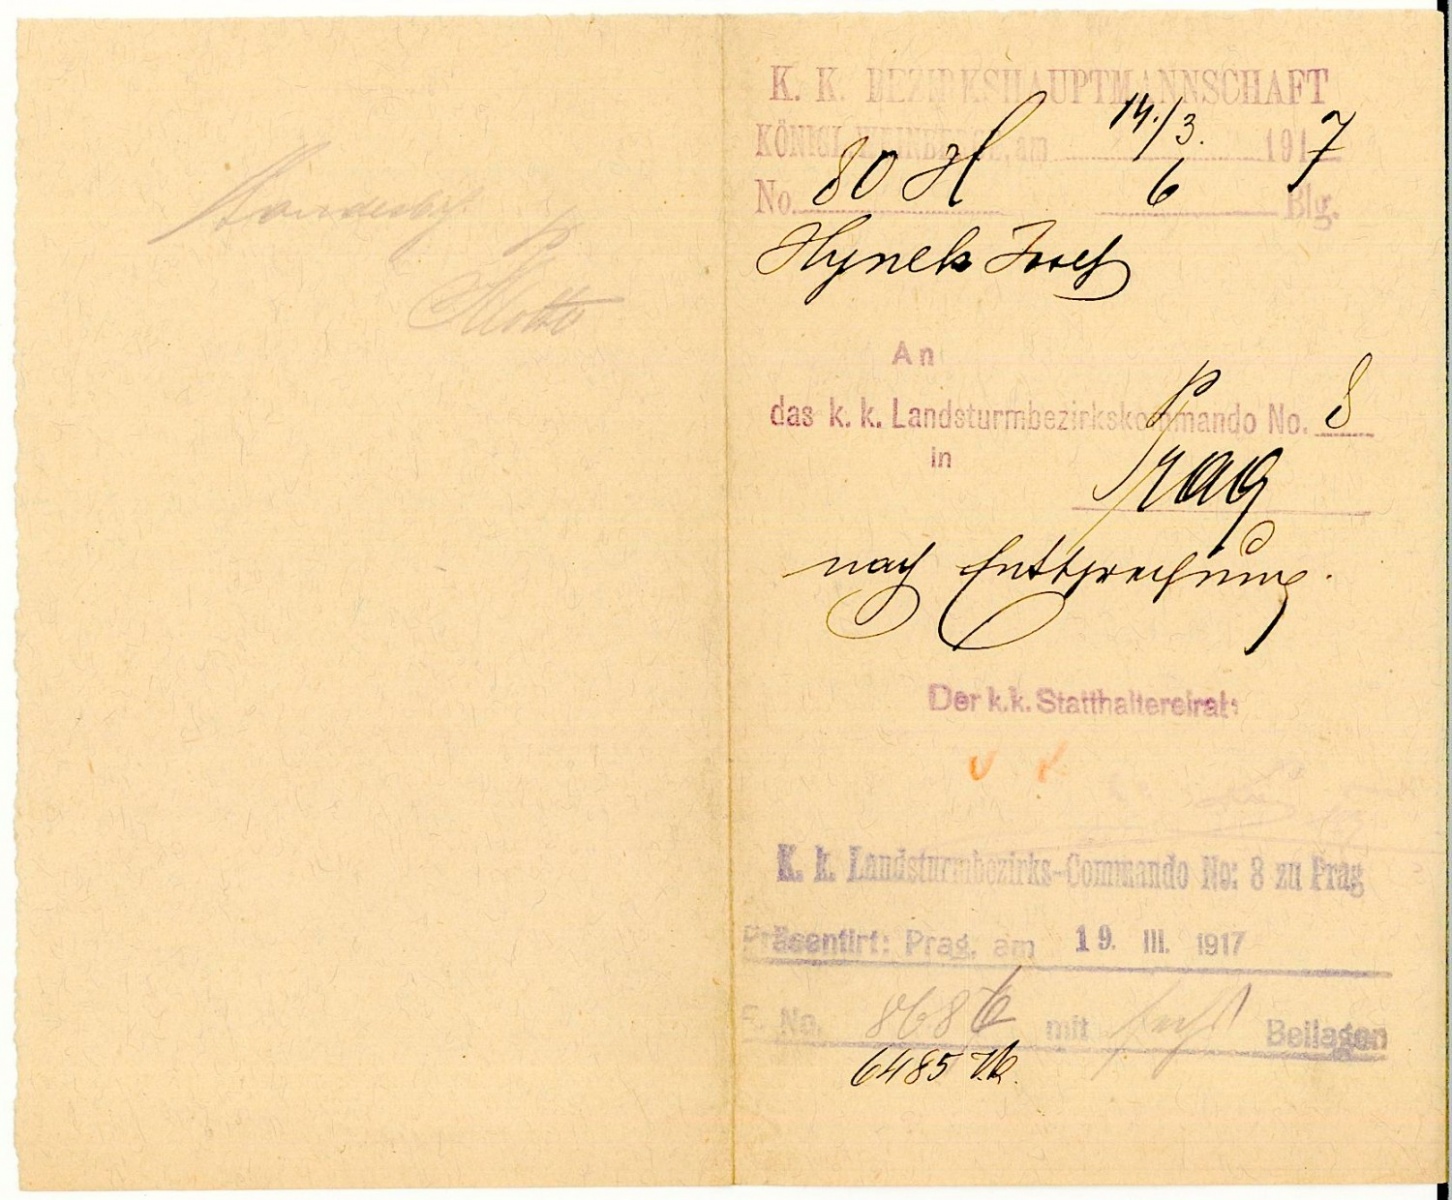 K. K. BEZIRKSHAUPTMANNSCHAFT
KÖNIGL. WEINBERGE, am 14./3. 1917
No. 80 H 6 Blg.
Hynek Josef
An
das k. k. Landsturmbezirkskommando No. 8
in
Prag
nach Entsprechung.
Der k.k. Statthaltereirat:
K. k. Landsturmbezirks-Commando No: 8 zu Prag
Präsentirt: Prag, am 19. III. 1917
E. No. 8686 mit sechs Beilagen
6485